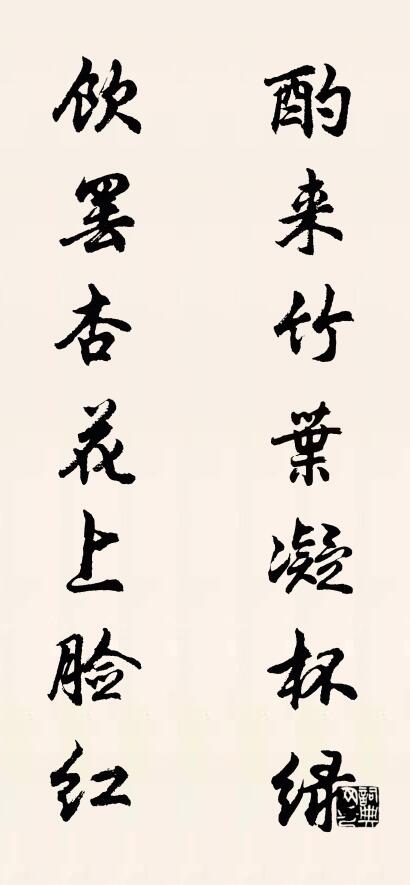 酌来竹葉凝杯绿
饮罢杏花上脸红
詞典